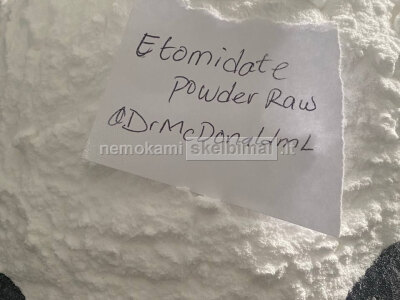 Etomidate
Powder Raw
@DrMcDonaldmL
nemokami skelbimai.lt